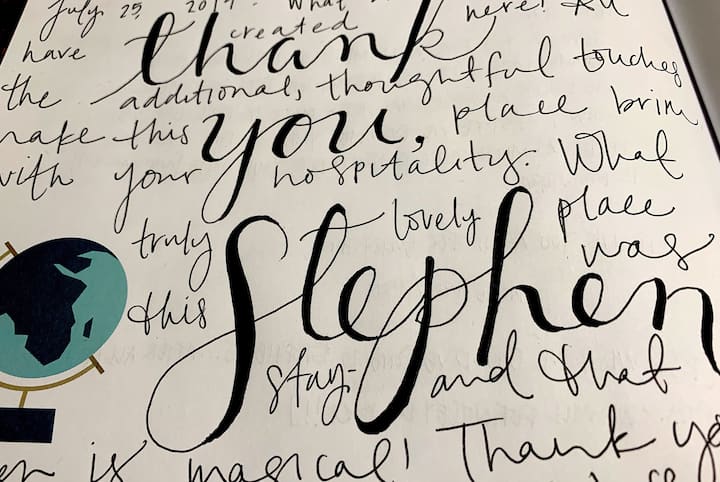 July 25, 201 . What here! All
have thank created
the additional, thoughtful touches
make this you, place brim
with your hospitality. What
truly lovely place
this Stephen was
stay- and that
is magical! Thank